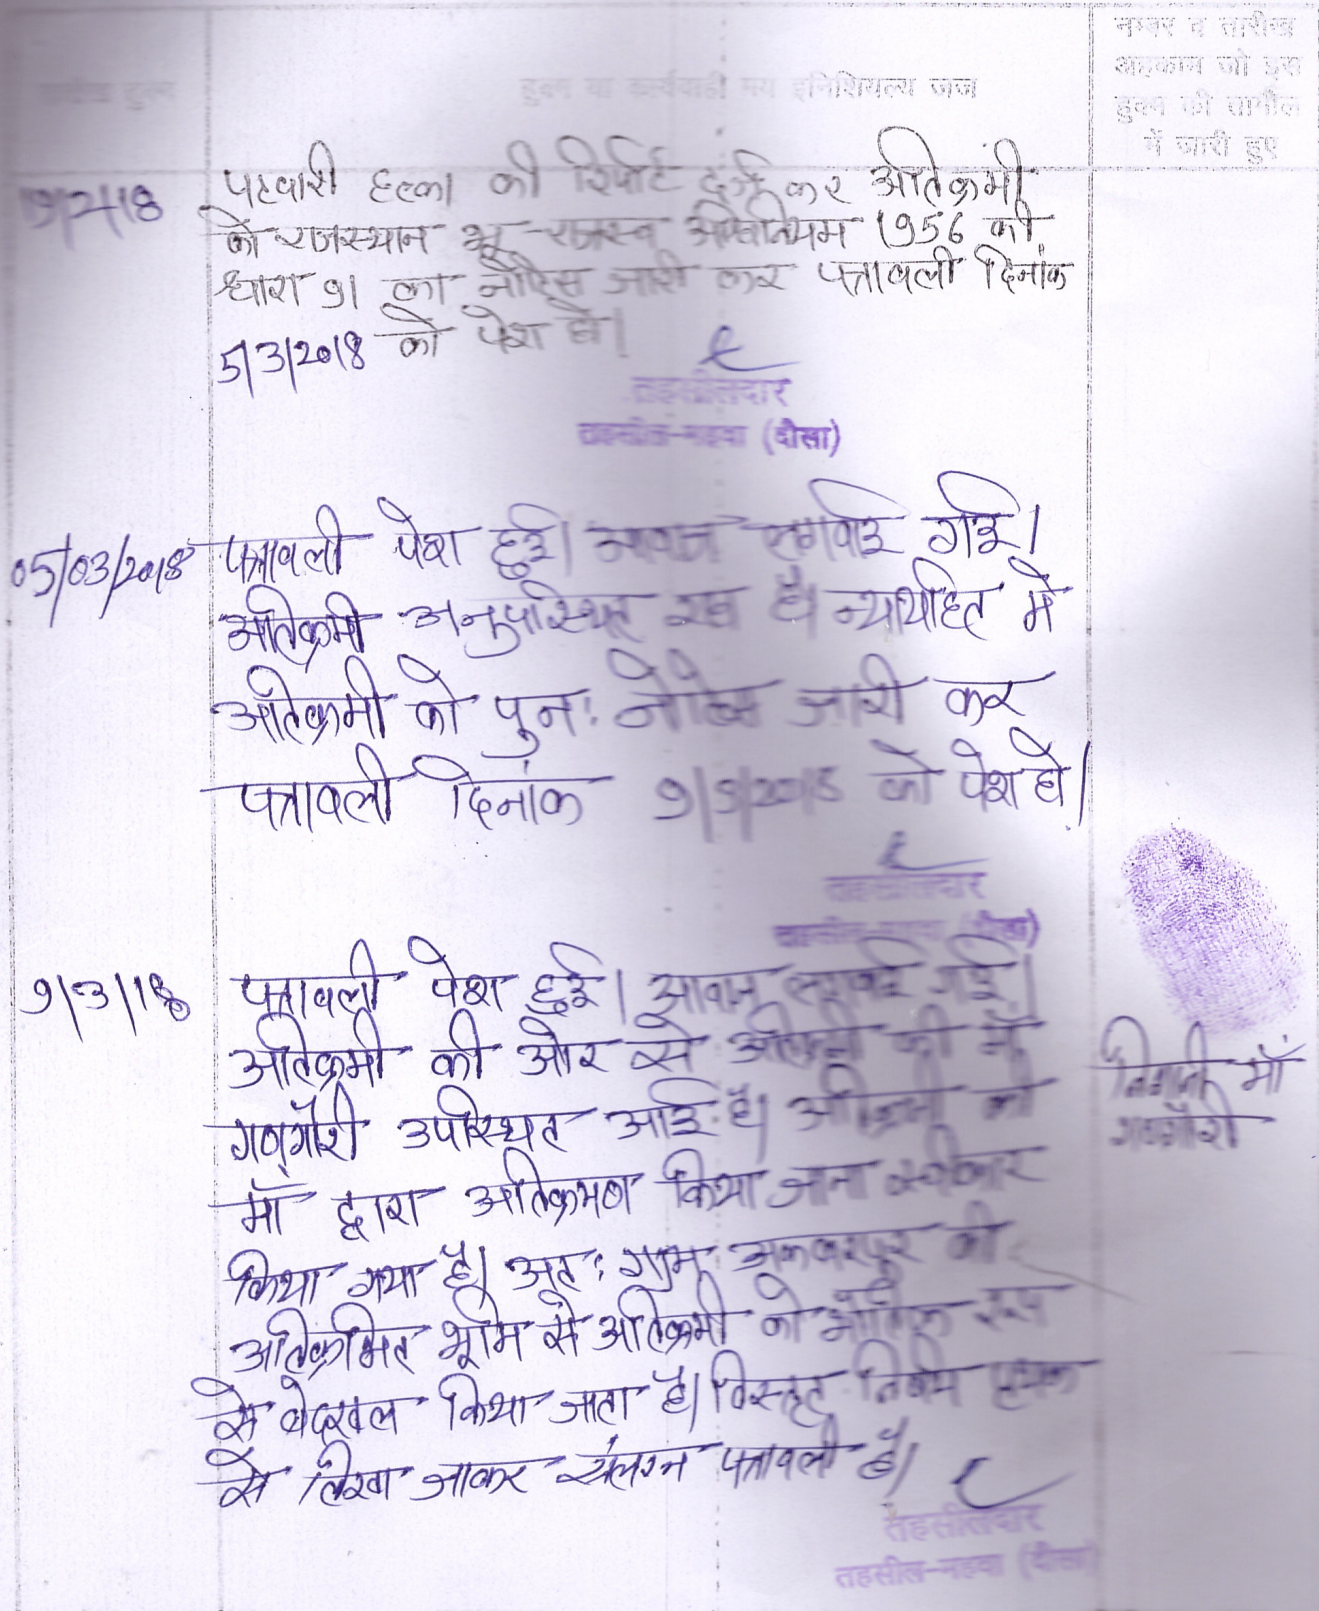 नम्बर व तारीख
अहकाम जो इस
हुक्म की तामील
में जारी हुए
तारीख हुक्म
हुक्म या कार्यवाही मय इनिशियल्स जज
पटवारी हल्का की रिपोर्ट दर्ज कर अतिक्रमी
को राजस्थान भू-राजस्व अधिनियम 1956 की
धारा 91 का नोटिस जारी कर पत्रावली दिनांक
5/3/2018 को पेश हो।
तहसीलदार
तहसील-महवा (दौसा)
05/03/2018
पत्रावली पेश हुई। आवाज लगवाई गई।
अतिक्रमी अनुपस्थित रहा है। न्यायहित में
अतिक्रमी को पुनः नोटिस जारी कर
पत्रावली दिनांक को पेश हो।
तहसीलदार
तहसील-महवा (दौसा)
9/3/18
पत्रावली पेश हुई। आवाज लगवाई गई।
अतिक्रमी की ओर से अतिक्रमी की माँ
गणगौरी उपस्थित आई है। अतिक्रमी की
माँ द्वारा अतिक्रमण किया जाना स्वीकार
किया गया है। अतः ग्राम अकबरपुर की
अतिक्रमित भूमि से अतिक्रमी को भौतिक रूप
से बेदखल किया जाता है। विस्तृत निर्णय पृथक
से लिखा जाकर संलग्न पत्रावली है।
निशानी माँ
गणगौरी
तहसीलदार
तहसील-महवा (दौसा)